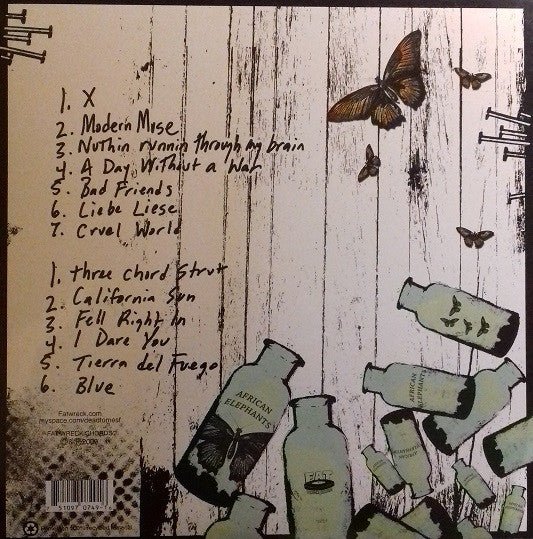 1. X
2. Modern Muse
3. Nuthin runnin through my brain
4. A Day Without a War
5. Bad Friends
6. Liebe Liese
7. Cruel World
1. three chord strut
2. California Sun
3. Fell Right In
4. I Dare You
5. Tierra del Fuego
6. Blue
Fatwreck.com
myspace.com/deadtomesf
FAT WRECK CHORDS
AFRICAN
ELEPHANTS
AFRICAN
ELEPHANTS
FAT
7 51097 0749 1 6